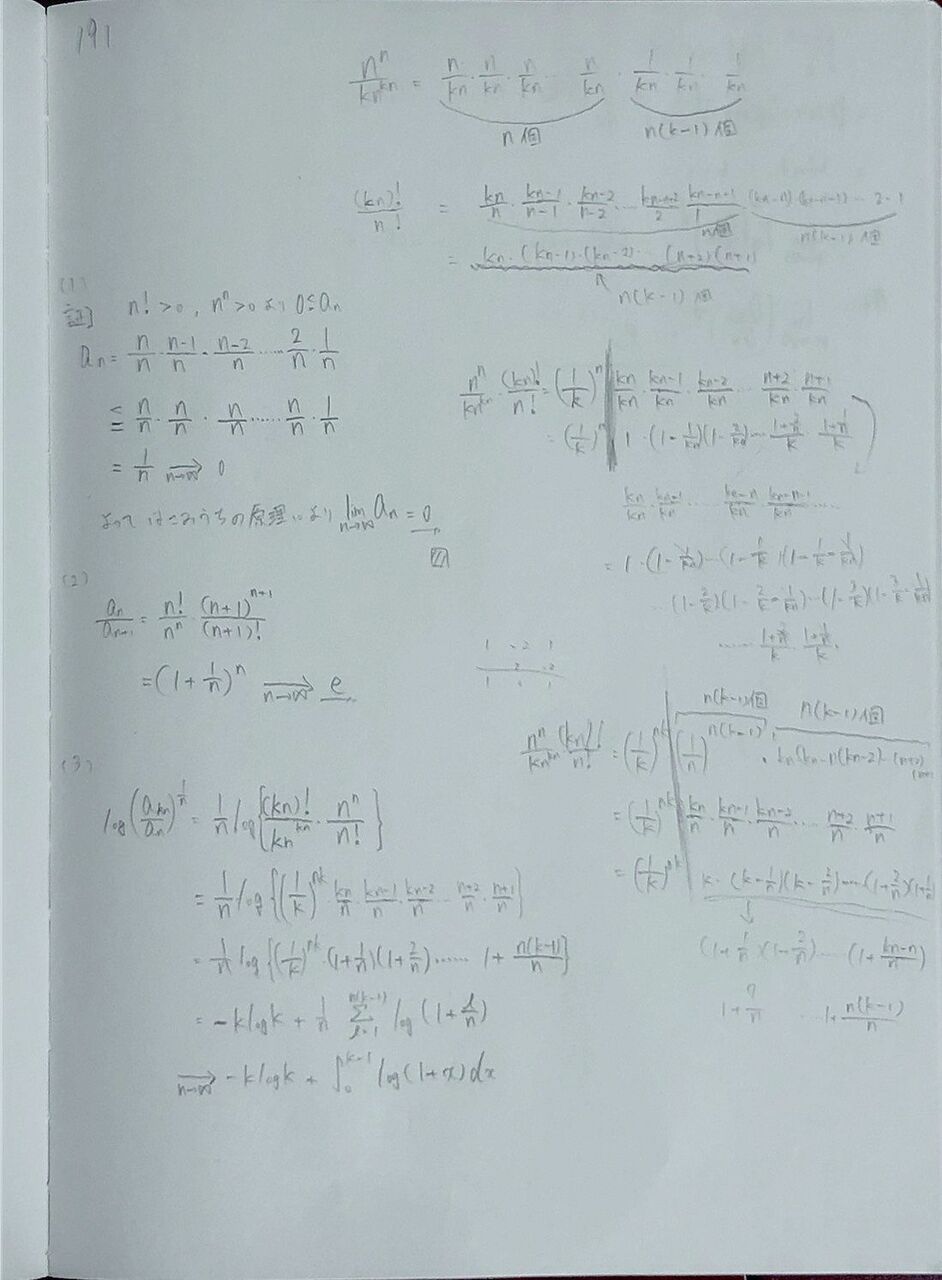 191
n^n/kn^{kn} = n/kn · n/kn · n/kn … n/kn · 1/kn · 1/kn · 1/kn
n個 n(k-1)個
(kn)!/n! = kn/n · kn-1/n-1 · kn-2/n-2 … kn-n+2/2 · kn-n+1/1 (kn-n)·(kn-n-1) … 2·1
n個 n(k-1)個
= kn·(kn-1)·(kn-2) … (n+2)(n+1)
n(k-1)個
(1)
証] n!>0, n^n>0 より 0≦a_n
a_n = n/n · n-1/n · n-2/n …… 2/n · 1/n
≦ n/n · n/n · n/n …… n/n · 1/n
= 1/n →_{n→∞} 0
よって はさみうちの原理により lim_{n→∞} a_n = 0
(2)
a_n/a_{n+1} = n!/n^n · (n+1)^{n+1}/(n+1)!
= (1+1/n)^n →_{n→∞} e
(3)
log(a_{kn}/a_n)^{1/n} = 1/n log{(kn)!/kn^{kn} · n^n/n!}
= 1/n log{(1/k)^{nk} kn/n · kn-1/n · kn-2/n … n+2/n · n+1/n}
= 1/n log{(1/k)^{nk}·(1+1/n)(1+2/n)…… 1+ n(k-1)/n}
= -klogk + 1/n Σ_{l=1}^{n(k-1)} log(1+l/n)
→_{n→∞} -klogk + ∫_0^{k-1} log(1+x)dx
n^n/kn^{kn} · (kn)!/n! = (1/k)^n kn/kn · kn-1/kn · kn-2/kn … n+2/kn · n+1/kn
= (1/k)^n 1·(1-1/kn)(1-2/kn)… 1+2/n/k · 1+1/n/k
kn/kn · kn-1/kn … kn-n/kn · kn-n-1/kn ……
= 1·(1-1/kn)…(1-1/k)(1-1/k-1/kn)
…(1-2/k)(1-2/k-1/kn)…(1-3/k)(1-3/k-1/kn)
…… 1+2/n/k · 1+1/n/k
n(k-1)個 n(k-1)個
n^n/kn^{kn} · (kn)!/n! = (1/k)^{nk} (1/n)^{n(k-1)} · kn(kn-1)(kn-2)…(n+2)(n+1)
= (1/k)^{nk} kn/n · kn-1/n · kn-2/n … n+2/n · n+1/n
= (1/k)^{nk} k·(k-1/n)(k-2/n)……(1+2/n)(1+1/n)
(1+1/n)(1+2/n)…(1+ kn-n/n)
…1+ n(k-1)/n